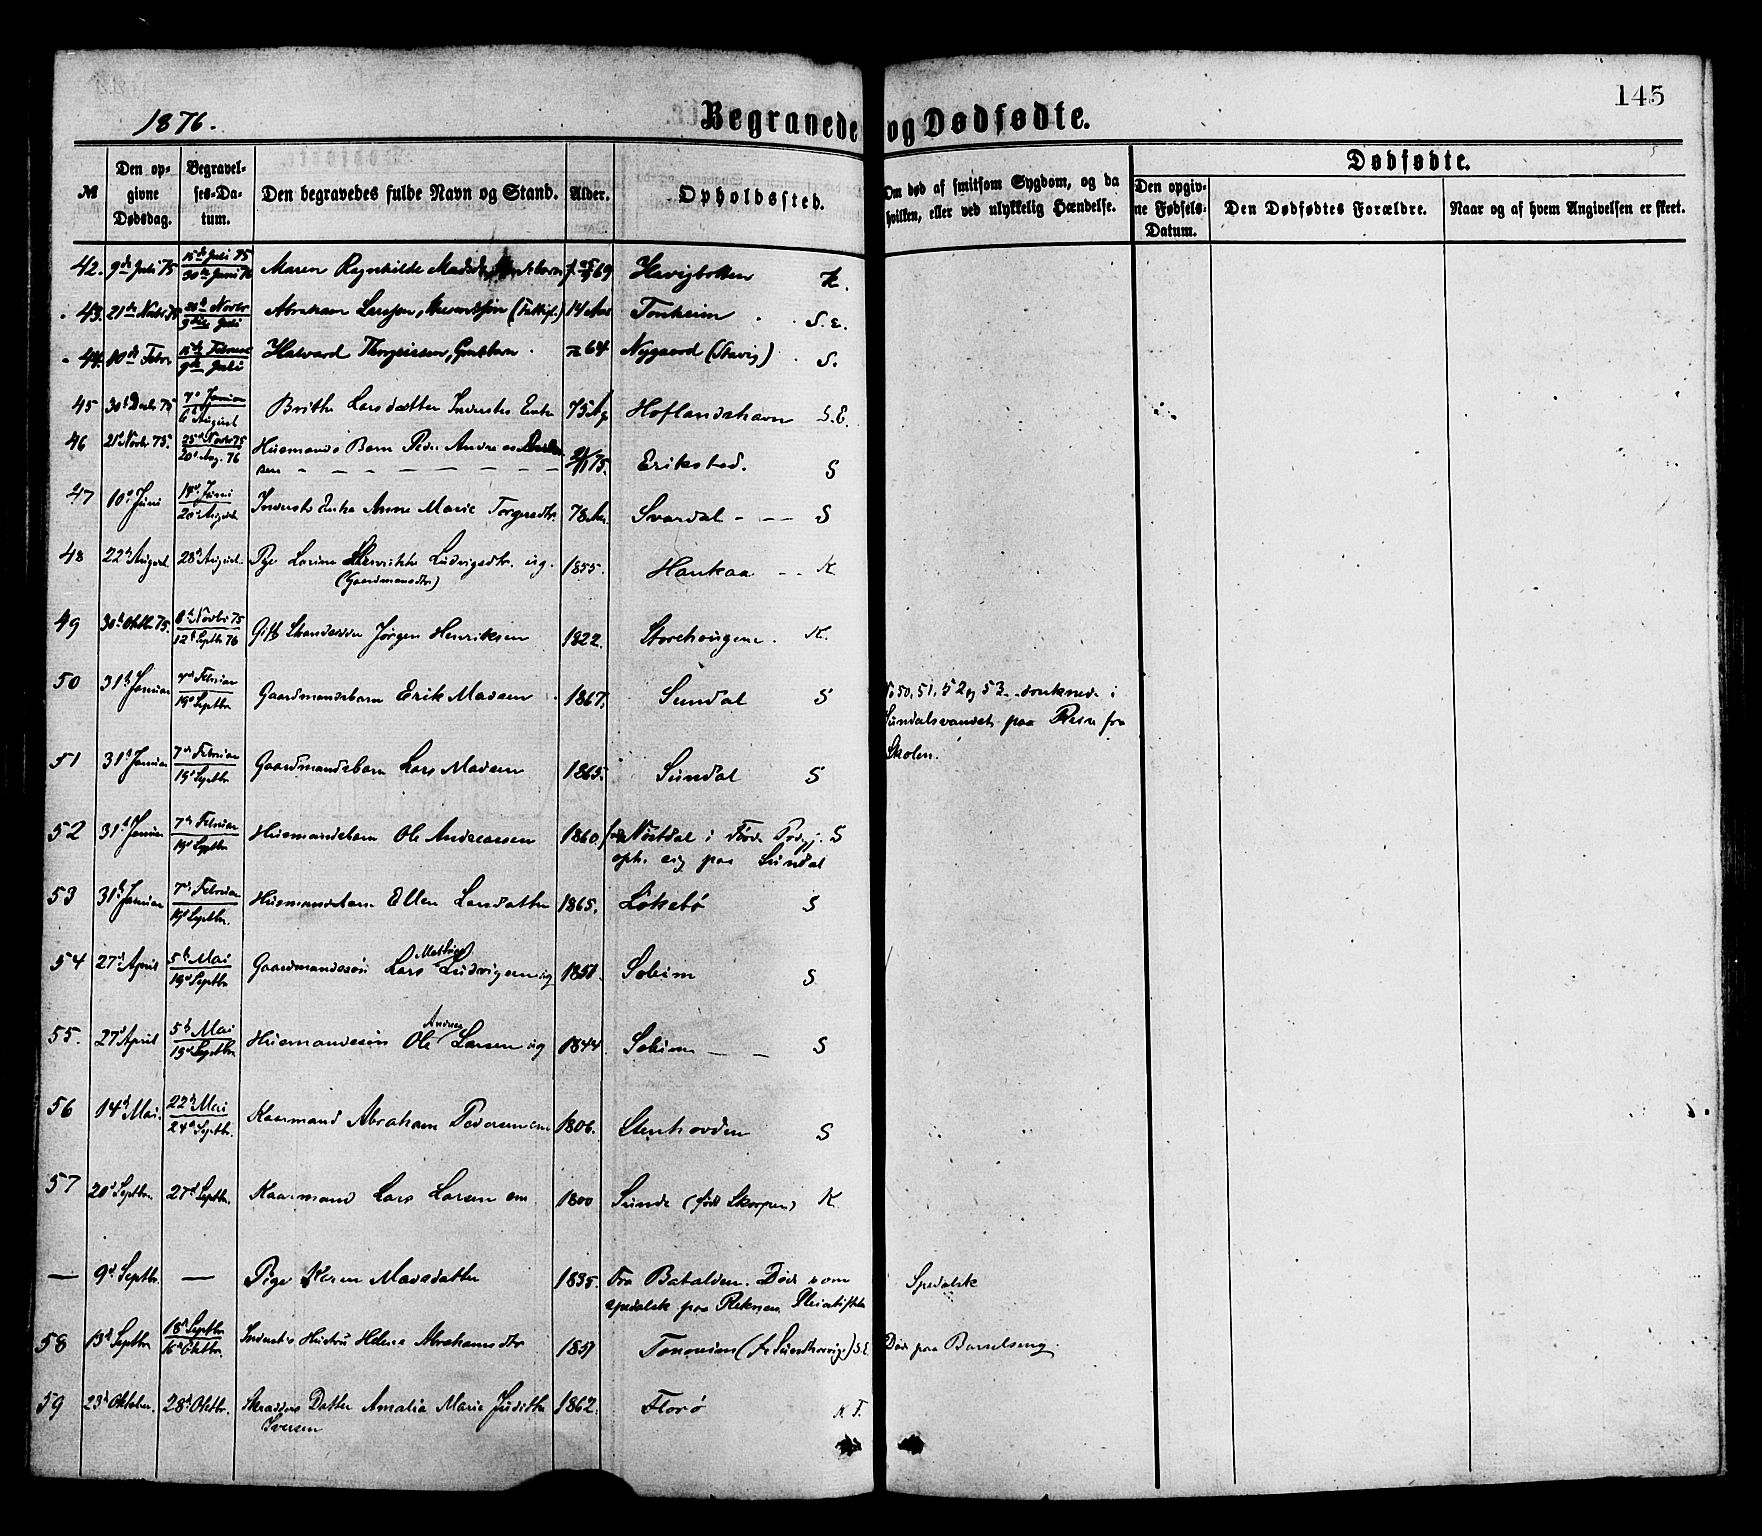 1876.
Begravede og Dødfødte.
145
№
Den opgivne Dødsdag.
Begravelses-Datum.
Den begravedes fulde Navn og Stand.
Alder.
Opholdssted.
Om død af smitsom Sygdom, og da hvilken, eller ved ulykkelig Hændelse.
Dødfødte.
Den opgivne Fødsels-Datum.
Den Dødfødtes Forældre.
Naar og af hvem Angivelsen er skeet.
42. 9de Juli 75 15de Juli 75 30te Juni 76 Maren Regnhilde 69 Havigbotten K.
43. 21de Novbr 75 Novbr Juli Abraham Larssøn, 14 Aar Tonheim S.E.
44. 10de Febr 15de Februar 9de Juli Halvard 64 Nygaard (Stavig) S.
45 30te Decbr 75 7de Januar 6te August Brithe Larsdatter Inderstes Enke 75 Aar Hoflandshavn S.E.
46 21de Novbr 75. 25de Novbr 75 20de Aug. 76 Husmands Barn Peder Andreas
sen 75. Erikstad. S
47 10de Juni 18de Juni 20de August Inderstes Enke Anne Marie 78 Aar Svardal S
48 22de August 28de August Pige Larine Henrikke Ludvigsdtr. ug. 1855. Haukaa K
(Gaardmandsdtr)
49 30te Oktbr 75. 8de Novbr 75 12te Septbr 76 Gift Strandsidder Jørgen Henriksen 1822. Storehougene. K.
50 31te Januar 7de Februar 19de Septbr Gaardmandsbarn Erik Madsen 1867. Sundal S
No 50, 51, 52 og 53. druknede i
Sundalsvandet paa Reise fra
Skolen.
51 31te Januar 7de Februar 19de Septbr Gaardmandsbarn Lars Madsen 1865. Sundal S
52 31te Januar 7de Februar 19de Septbr Husmandsbarn Ole Andreassen 1860. fra Nøstdal i Førde Prdgj. S
oph. sig paa Sundal
53 31te Januar 7de Februar 19de Septbr. Husmandsbarn Ellen Larsdatter 1865. Løkebø S
54 27de April 5te Mai 19de Septbr Gaardmandssøn Lars Mathias Ludvigsen ug 1851. Soleim S
55. 27de April 5te Mai 19de Septbr Husmandssøn Ole Andreas Larsen ug 1844 Soleim S
56 14de Mai. 22de Mai 24de Septbr. Kaarmand Abraham Pedersen em 1806. Stenhovden S
57 20de Septbr. 27de Septbr. Kaarmand Lars Larsen em 1800 Sunde (født Skorpen) K
— 9de Septbr. — Pige Karen Madsdatter 1835. Fra Batalden. Død som Spedalsk
spedalsk paa Reknes Pleiestiftelse
58 13de Septbr 18de Septbr 16de Oktbr. Inderstes Hustru Helene Abrahamsdtr 1851 (fr Sundhovig) S.E. Død paa Barselseng.
59 23de Oktober. 28de Oktbr. Skrædders Datter Amalia Marie Judithe 1862. Florø K F.
Iversen